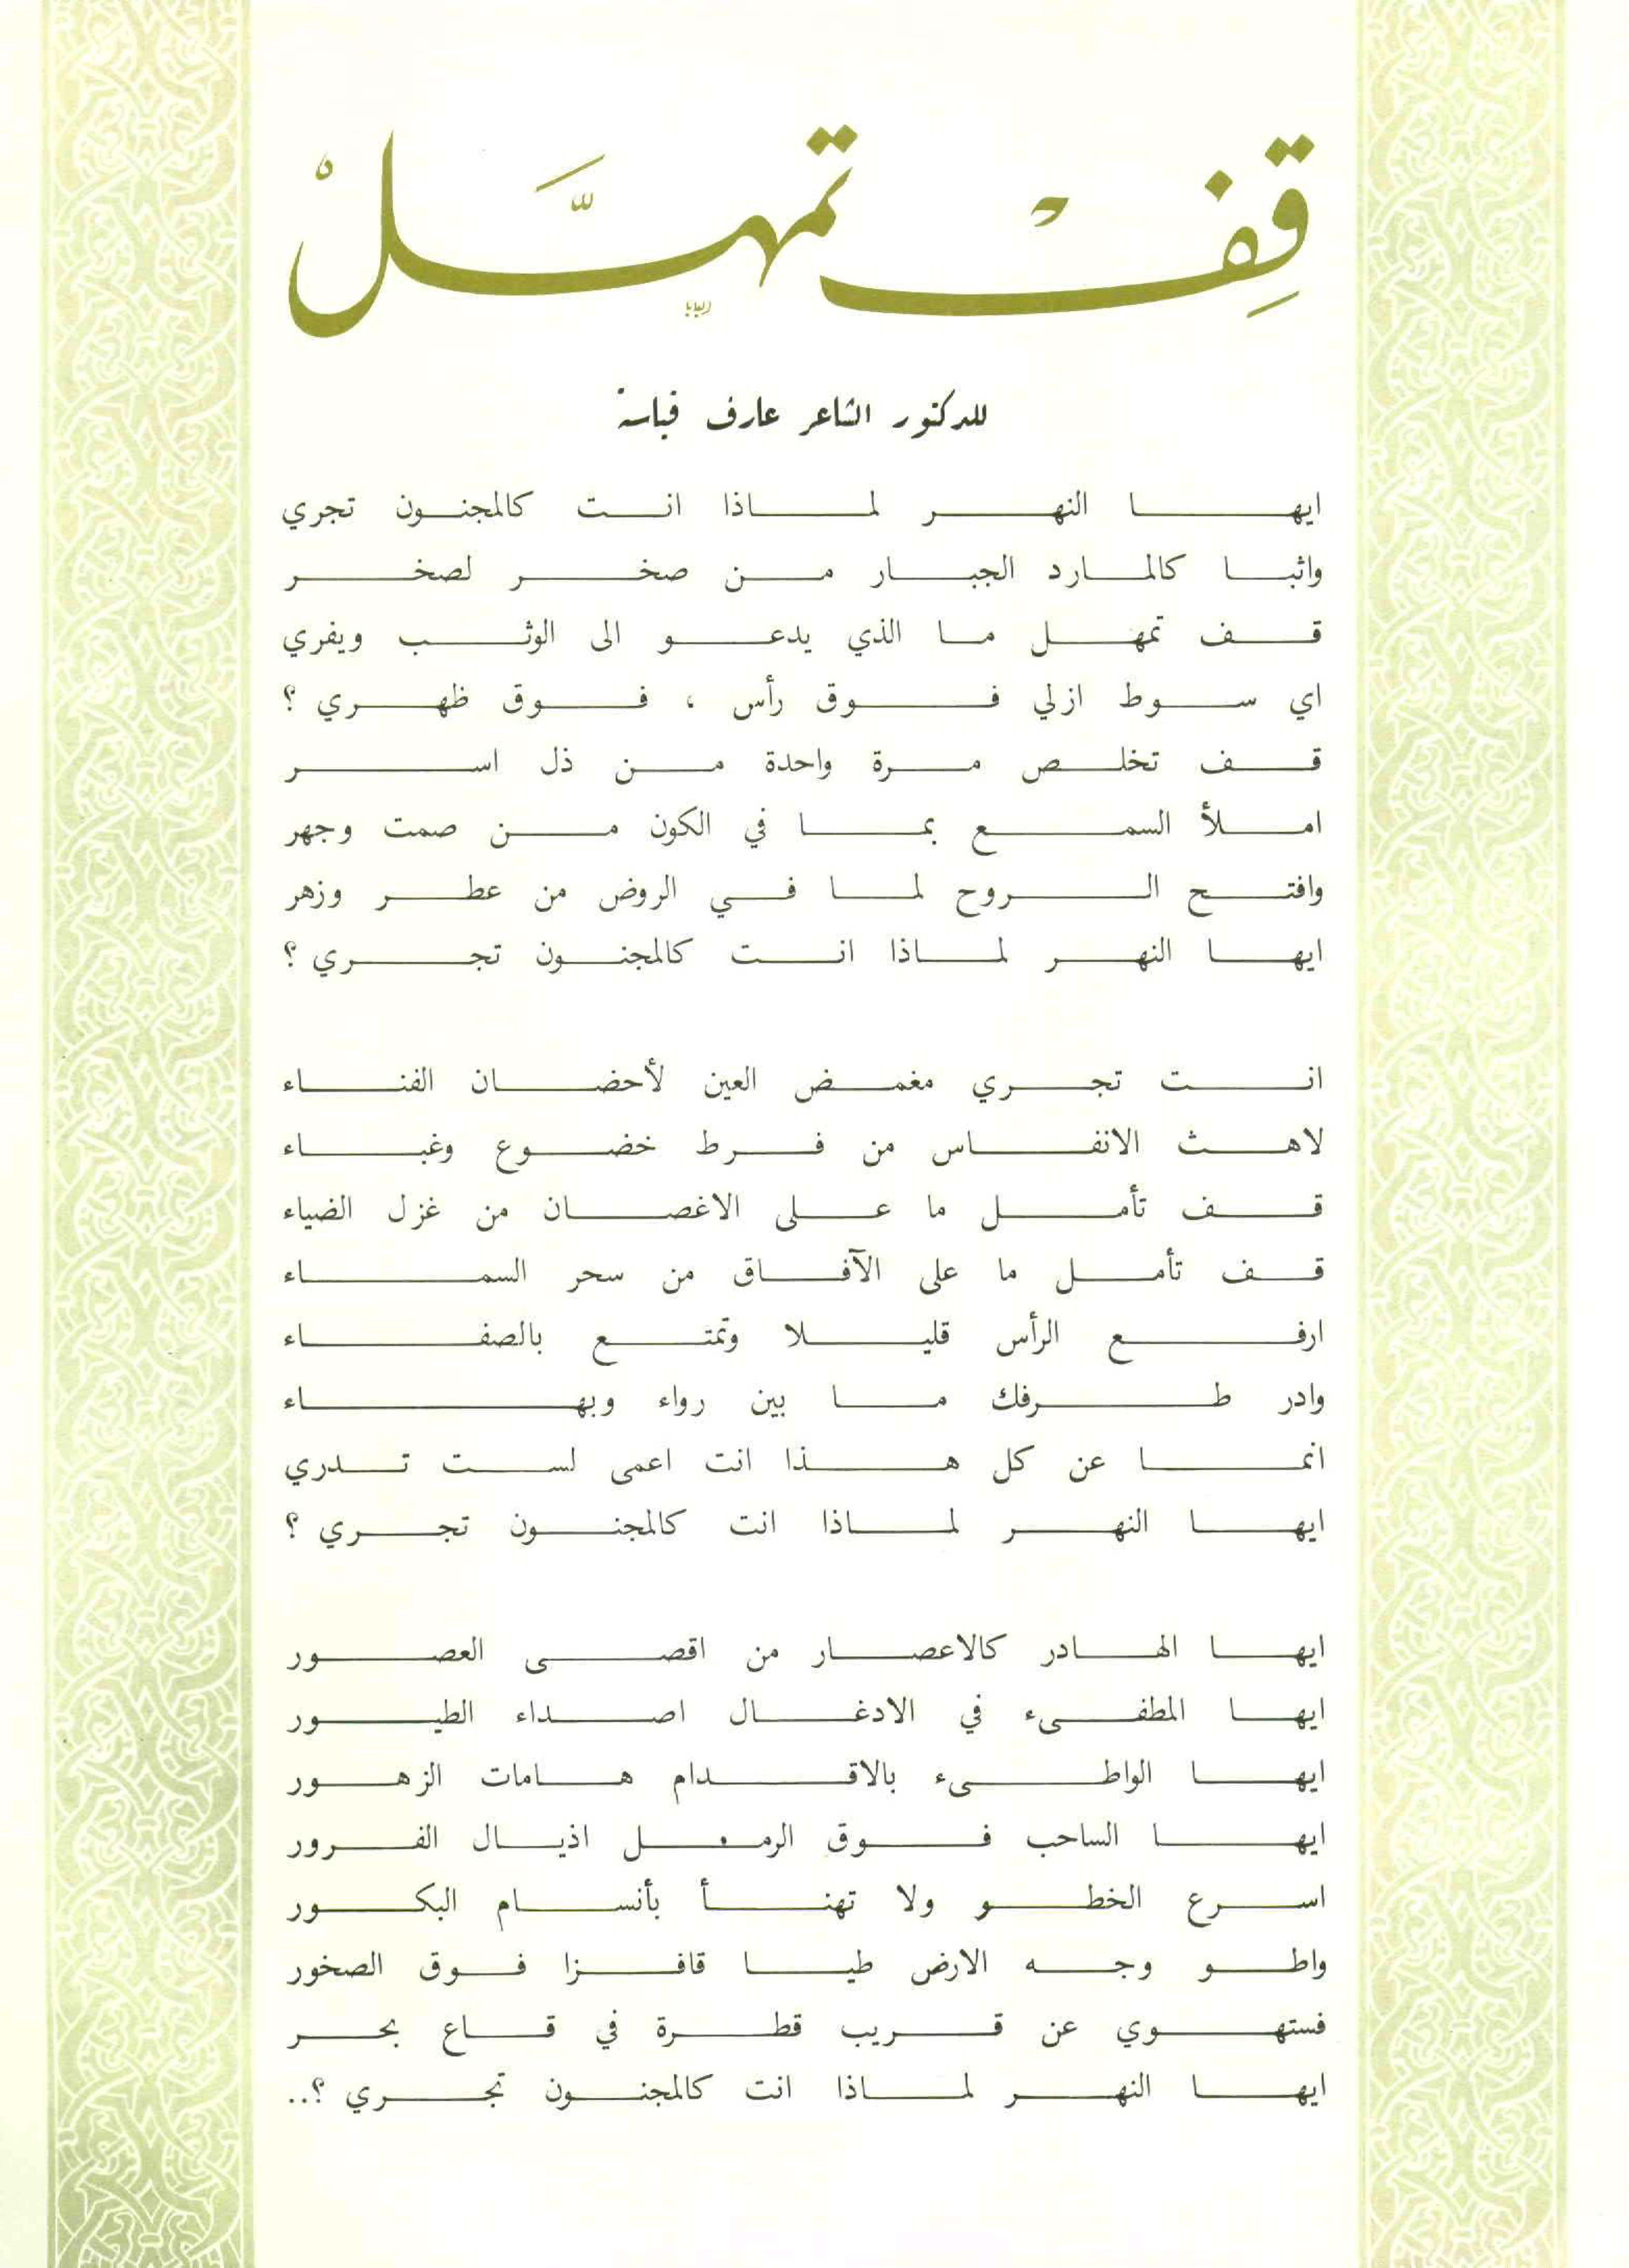 قِفْ تمهَّلْ
للدكتور الشاعر عارف قياسة
ايها النهر لماذا انت كالمجنون تجري
واثبا كالمارد الجبار من صخر لصخر
قف تمهل ما الذي يدعو الى الوثب ويفري
اي سوط ازلي فوق رأس ، فوق ظهري ؟
قف تخلص مرة واحدة من ذل اسر
املأ السمع بما في الكون من صمت وجهر
وافتح الروح لما في الروض من عطر وزهر
ايها النهر لماذا انت كالمجنون تجري ؟
انت تجري مغمض العين لأحضان الفناء
لاهث الانفاس من فرط خضوع وغباء
قف تأمل ما على الاغصان من غزل الضياء
قف تأمل ما على الآفاق من سحر السماء
ارفع الرأس قليلا وتمتع بالصفاء
وادر طرفك ما بين رواء وبهاء
انما عن كل هذا انت اعمى لست تدري
ايها النهر لماذا انت كالمجنون تجري ؟
ايها الهادر كالاعصار من اقصى العصور
ايها المطفىء في الادغال اصداء الطيور
ايها الواطىء بالاقدام هامات الزهور
ايها الساحب فوق الرمل اذيال الفرور
اسرع الخطو ولا تهنأ بأنسام البكور
واطو وجه الارض طيا قافزا فوق الصخور
فستهوي عن قريب قطرة في قاع بحر
ايها النهر لماذا انت كالمجنون تجري ؟..